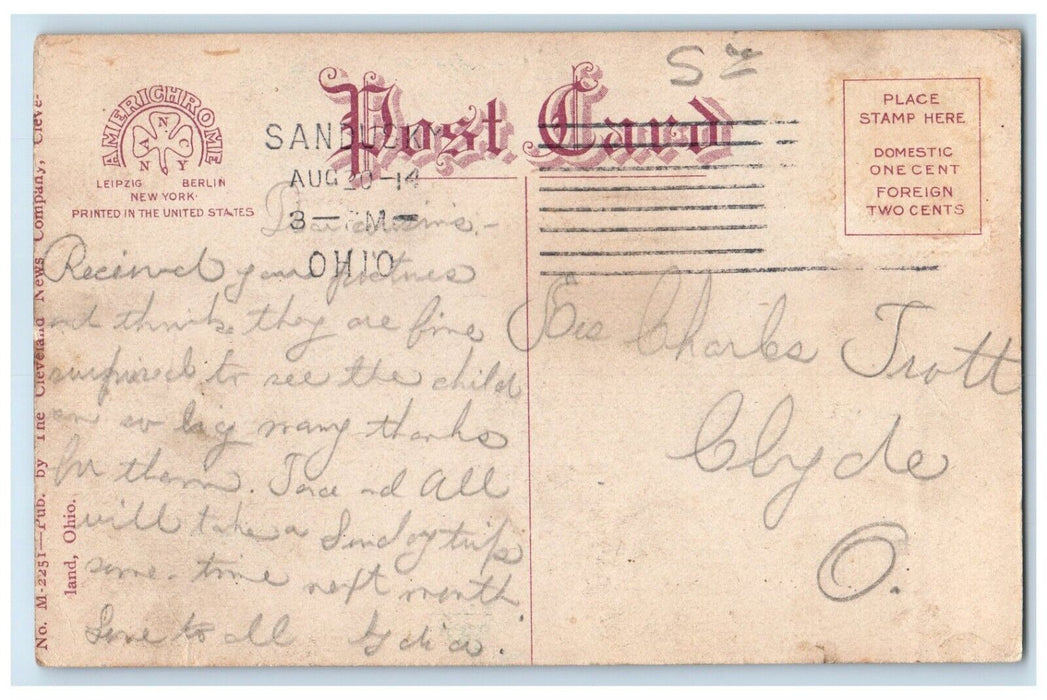 No. M-2251—Pub. by The Cleveland News Company, Cleve-
land, Ohio.
AMERICHROME
N
A N
N C
Y
LEIPZIG BERLIN
NEW YORK
PRINTED IN THE UNITED STATES
Post Card
SANDUSKY
AUG 20-14
3— M—
OHIO
PLACE
STAMP HERE
DOMESTIC
ONE CENT
FOREIGN
TWO CENTS
Received your pictures
and think they are fine
surprised to see the child
so big many thanks
for them. and All
will take a Sunday trip
some time next month.
Love to all Lydia.
Charles Trott
Clyde
O.